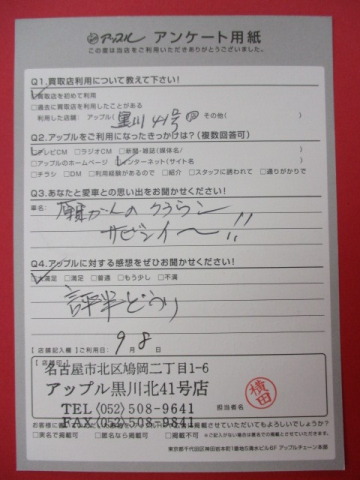 アップル アンケート用紙
この度は当店をご利用いただきありがとうございました。
Q1.買取店利用について教えて下さい!
買取店を初めて利用
□過去に買取店を利用したことがある
利用した店舗: アップル( 黒川41号 )その他( )
Q2.アップルをご利用になったきっかけは?(複数回答可)
テレビCM □ラジオCM □新聞・雑誌(媒体名/ )
□アップルのホームページ インターネット(サイト名 )
□チラシ □DM □利用経験があるので □紹介 □スタッフに誘われて □通りがかりで
Q3.あなたと愛車との思い出をお聞かせください!
車名:
クラウン
サビシイ〜!!
Q4.アップルに対する感想をぜひお聞かせください!
大満足 □満足 □普通 □もう少し □不満
評判どうり
【店舗記入欄】ご利用日: 9月8日
名古屋市北区鳩岡二丁目1-6
アップル黒川北41号店
TEL〈052〉508-9641
FAX〈052〉508-9841
担当者名
横田
□実名で掲載可 □匿名なら掲載可 □掲載不可
※ご記入がない場合は匿名での掲載とさせていただきます。